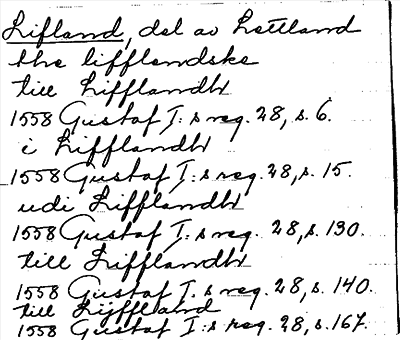 Lifland, del av Lettland
the lifflendske
till Lifflandh
1558 Gustaf I:s reg. 28, s. 6.
i Lifflandh
1558 Gustaf I:s reg. 28, s. 15.
udi Lifflandh
1558 Gustaf I:s reg. 28, s. 130.
till Lifflandh
1558 Gustaf I.s reg. 28, s. 140.
till Lijffland
1558 Gustaf I:s reg. 28, s. 167.